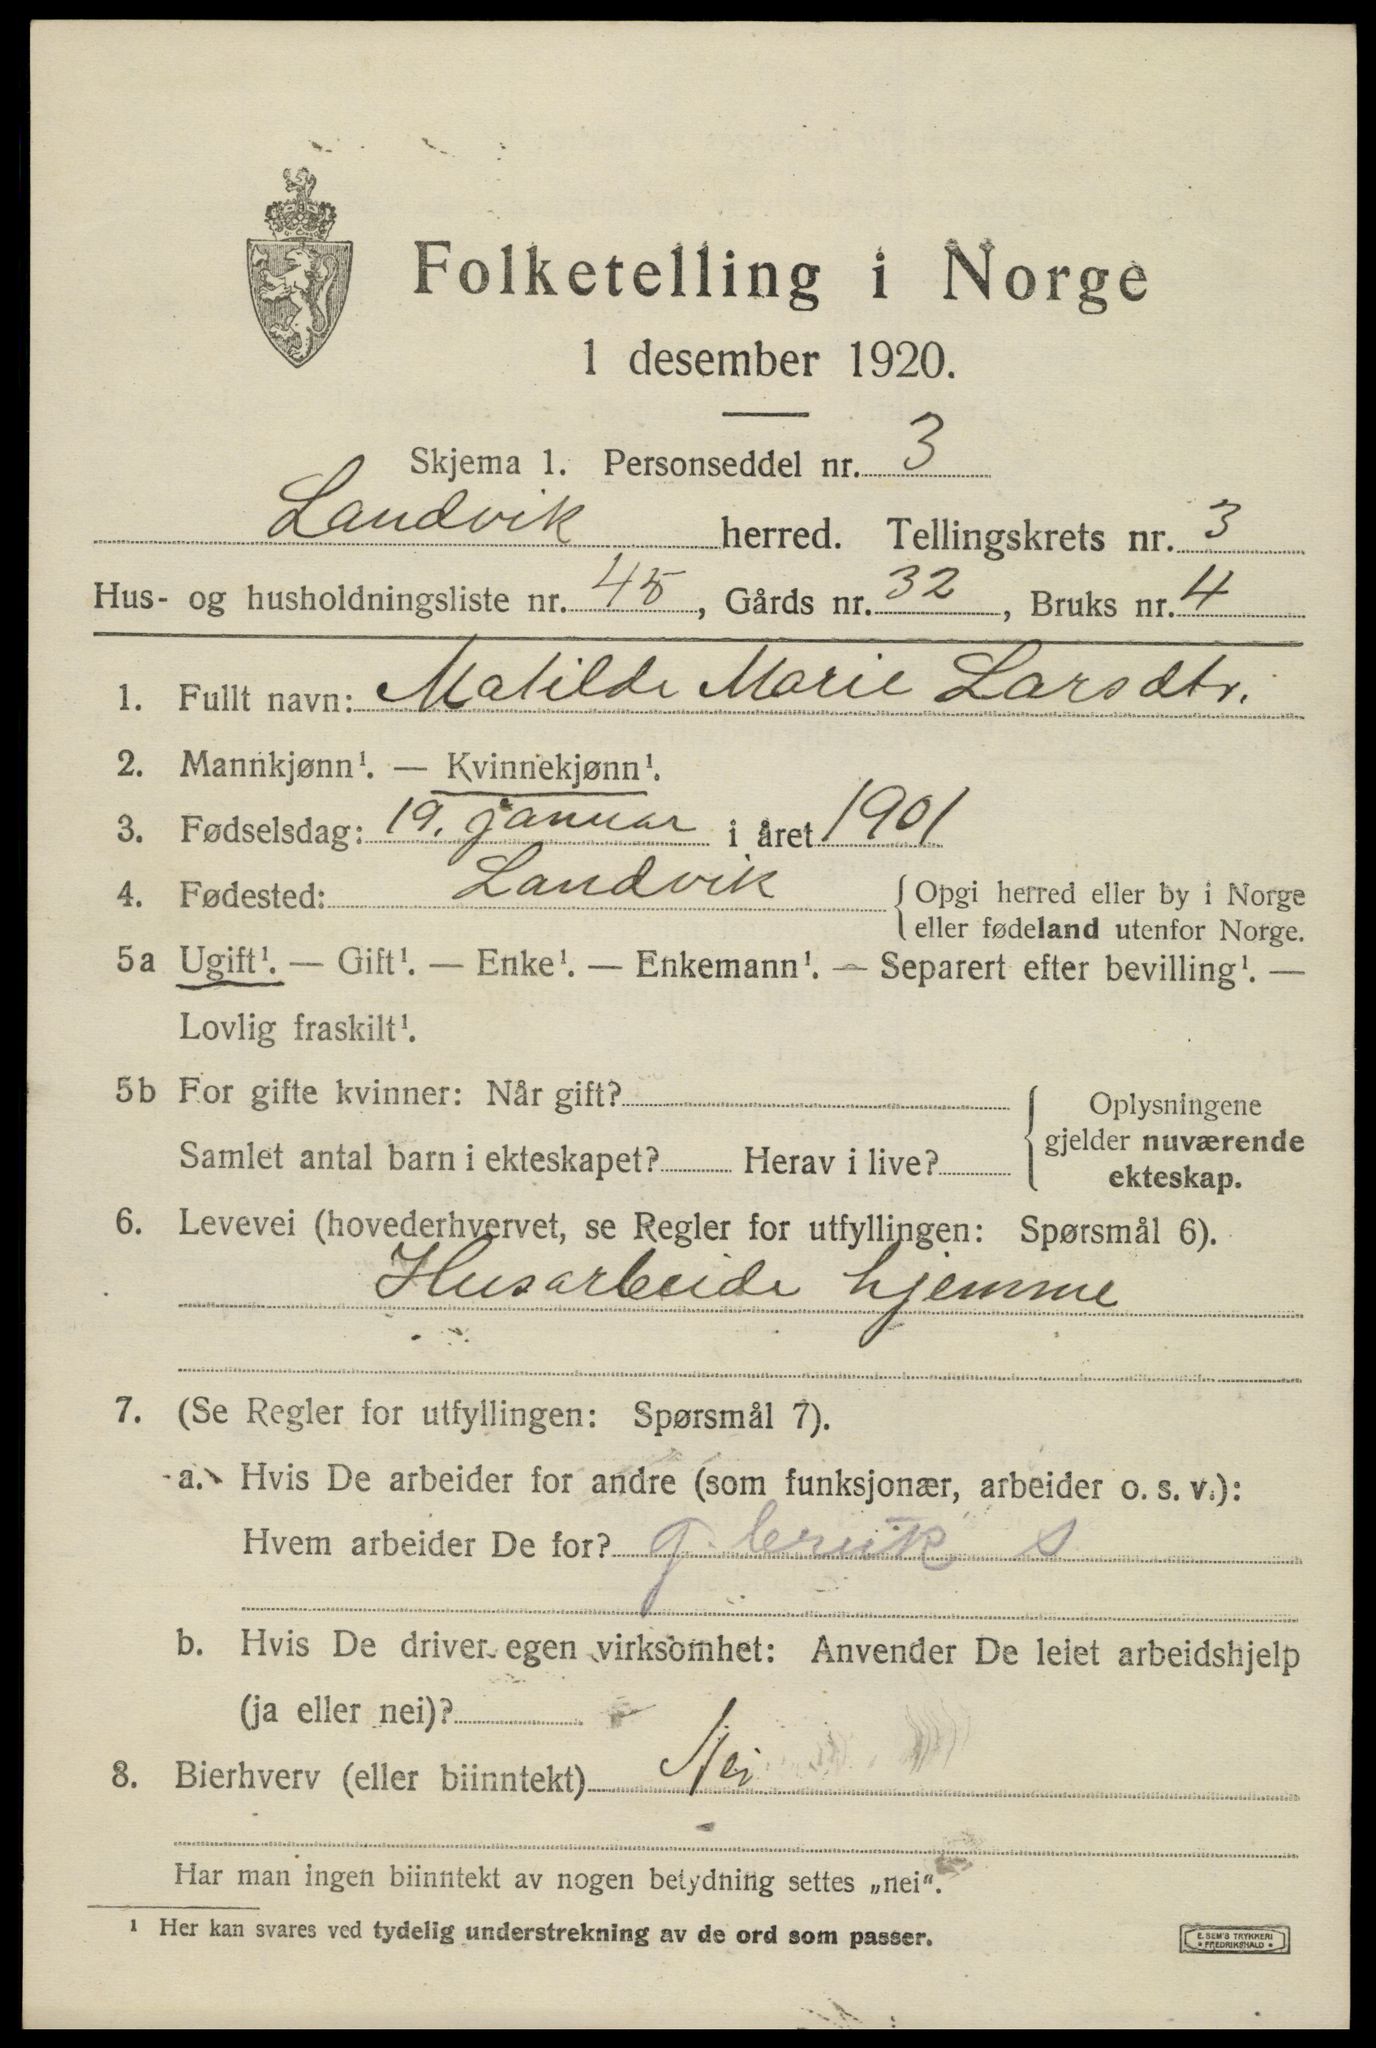 Folketelling i Norge
1 desember 1920.
Skjema 1. Personseddel nr. 3
Landvik herred. Tellingskrets nr. 3
Hus- og husholdningsliste nr. 45, Gårds nr. 32, Bruks nr. 4
1. Fullt navn: Matilde Marie Larsdtr.
2. Mannkjønn¹. — Kvinnekjønn¹.
3. Fødselsdag: 19. januar i året 1901
4. Fødested: Landvik { Opgi herred eller by i Norge
eller fødeland utenfor Norge.
5a Ugift¹. — Gift¹. — Enke¹. — Enkemann¹. — Separert efter bevilling¹. —
Lovlig fraskilt¹.
5b For gifte kvinner: Når gift? { Oplysningene
gjelder nuværende
Samlet antal barn i ekteskapet? Herav i live?
ekteskap.
6. Levevei (hovederhvervet, se Regler for utfyllingen: Spørsmål 6).
Husarbeide hjemme
7. (Se Regler for utfyllingen: Spørsmål 7).
a. Hvis De arbeider for andre (som funksjonær, arbeider o. s. v.):
Hvem arbeider De for? g.bruk s
b. Hvis De driver egen virksomhet: Anvender De leiet arbeidshjelp
(ja eller nei)?
8. Bierhverv (eller biinntekt) Nei
Har man ingen biinntekt av nogen betydning settes „nei“.
¹ Her kan svares ved tydelig understrekning av de ord som passer.
E. SEM'S TRYKKERI
• FREDRIKSHALD •